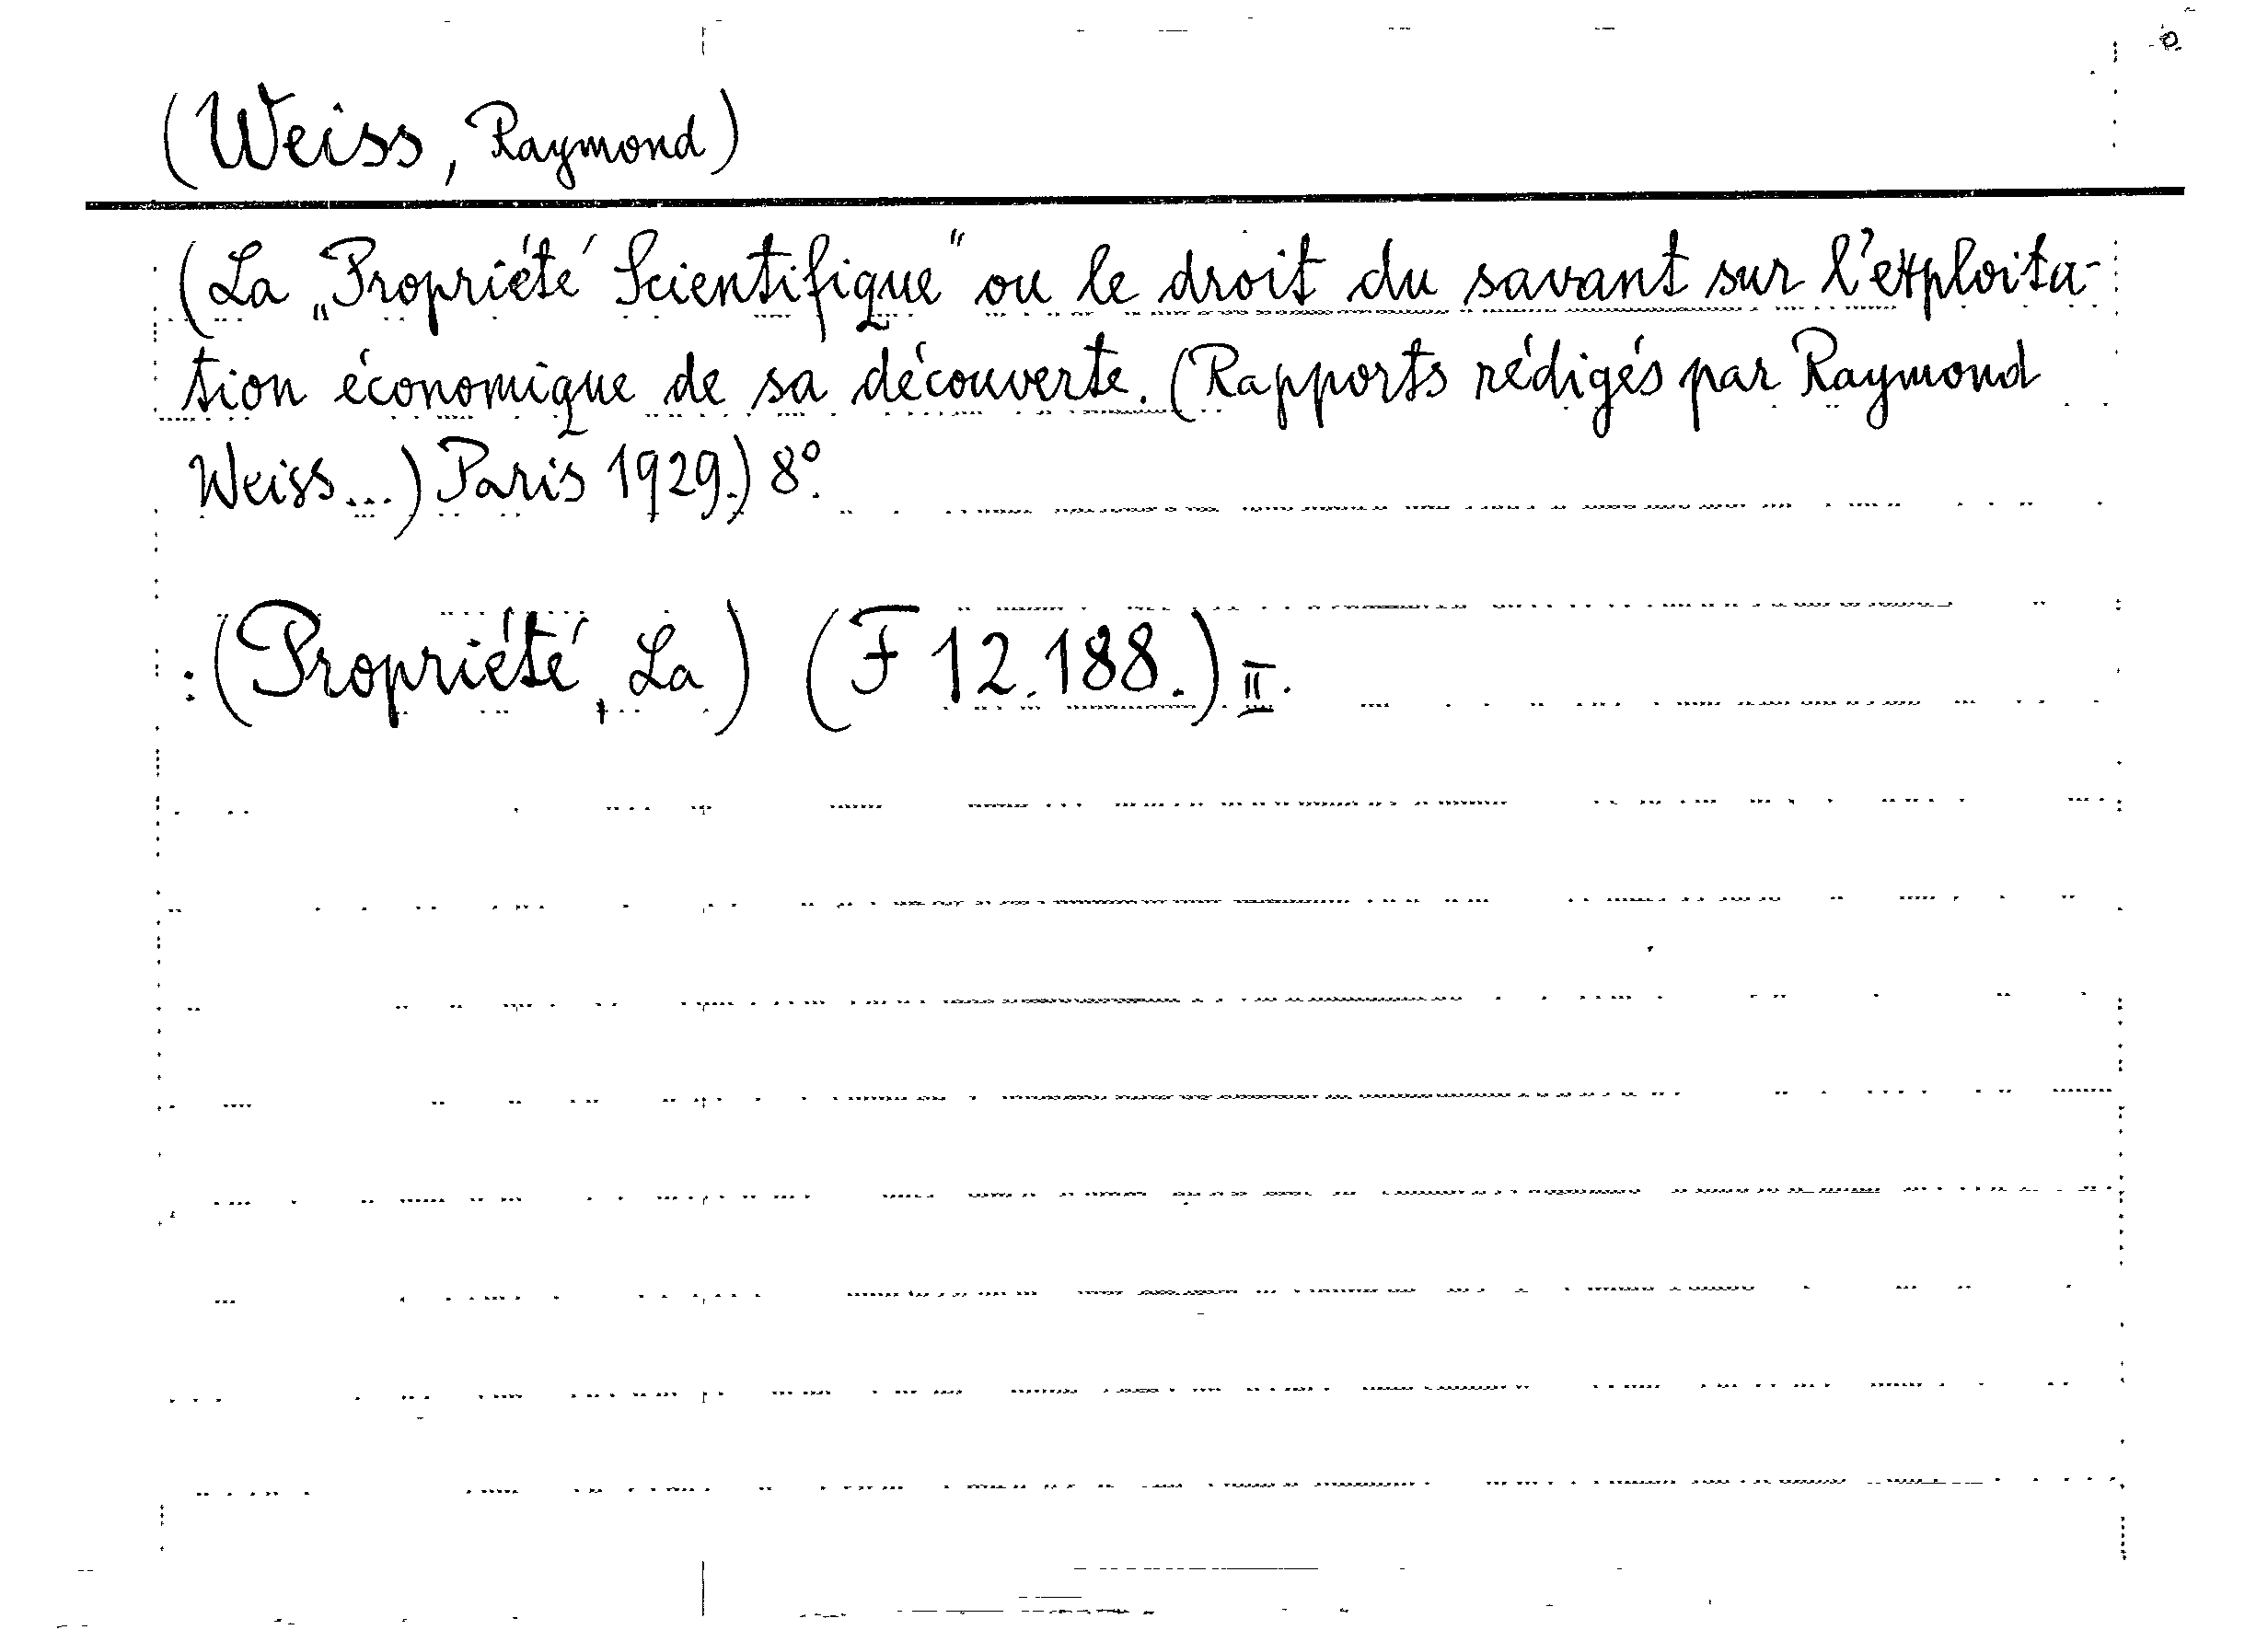 (Weiss, Raymond)
(La „Propriété Scientifique“ ou le droit du savant sur l'exploita-
tion économique de sa découverte. (Rapports rédigés par Raymond
Weiss...) Paris 1929.) 8°.
:(Propriété, La) (F 12.188.) II.